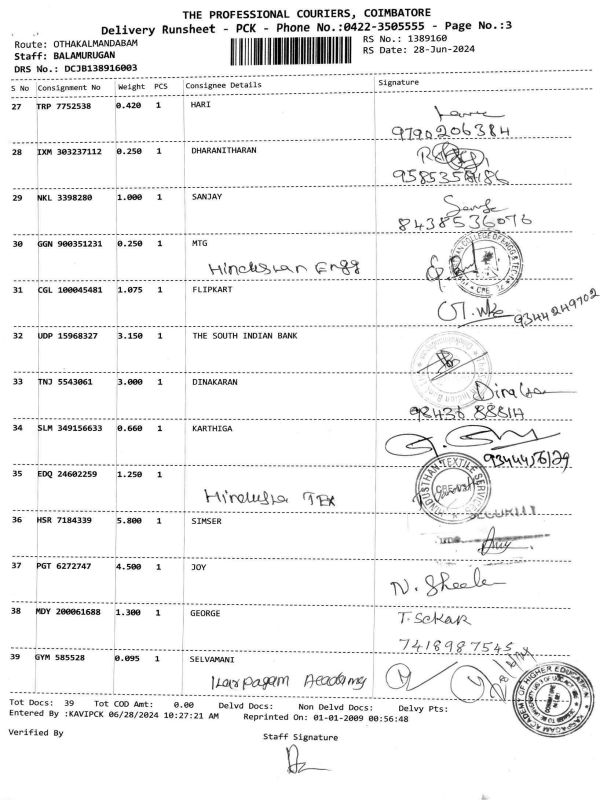 THE PROFESSIONAL COURIERS, COIMBATORE
Delivery Runsheet - PCK - Phone No.:0422-3505555 - Page No.:3
Route: OTHAKALMANDABAM
RS No.: 1389160
Staff: BALAMURUGAN
RS Date: 28-Jun-2024
DRS No.: DCJB138916003
S No Consignment No Weight PCS Consignee Details Signature
27 TRP 7752538 0.420 1 HARI
9790206384
28 IXM 303237112 0.250 1 DHARANITHARAN
29 NKL 3398280 1.000 1 SANJAY
8438536076
30 GGN 900351231 0.250 1 MTG
Hindustan Engg
31 CGL 100045481 1.075 1 FLIPKART
9344249702
32 UDP 15968327 3.150 1 THE SOUTH INDIAN BANK
33 TNJ 5543061 3.000 1 DINAKARAN
34 SLM 349156633 0.660 1 KARTHIGA
9344456129
35 EDQ 24602259 1.250 1
HINDUSTHAN TEXTILE SERVICES
Hindustan TEX
36 HSR 7184339 5.800 1 SIMSER
SECURITY
37 PGT 6272747 4.500 1 JOY
N. Sheela
38 MDY 200061688 1.300 1 GEORGE
T. Sekar
7418987545
39 GYM 585528 0.095 1 SELVAMANI
Karpagam Academy
KARPAGAM ACADEMY OF HIGHER EDUCATION
Tot Docs: 39 Tot COD Amt: 0.00 Delvd Docs: Non Delvd Docs: Delvy Pts:
Entered By :KAVIPCK 06/28/2024 10:27:21 AM Reprinted On: 01-01-2009 00:56:48
Verified By
Staff Signature